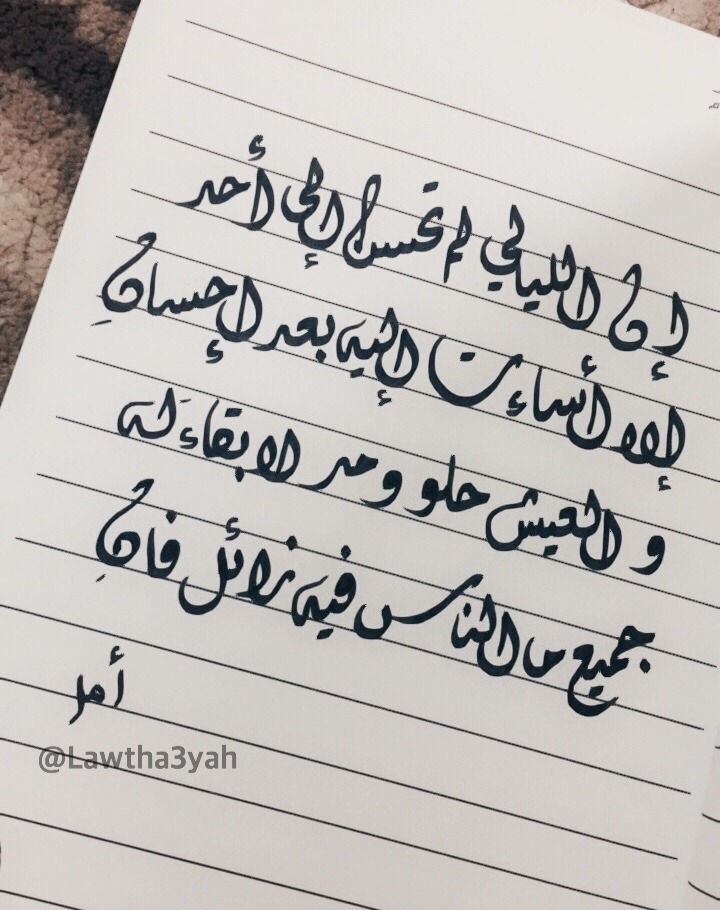 إن الليالي لم تحسن إلى أحد
إلا أساءت إليه بعد إحسانِ
والعيش حلو ومر لا بقاءَ لَه
جميع ما الناس فيه زائل فانِ
أمل
@Lawtha3yah